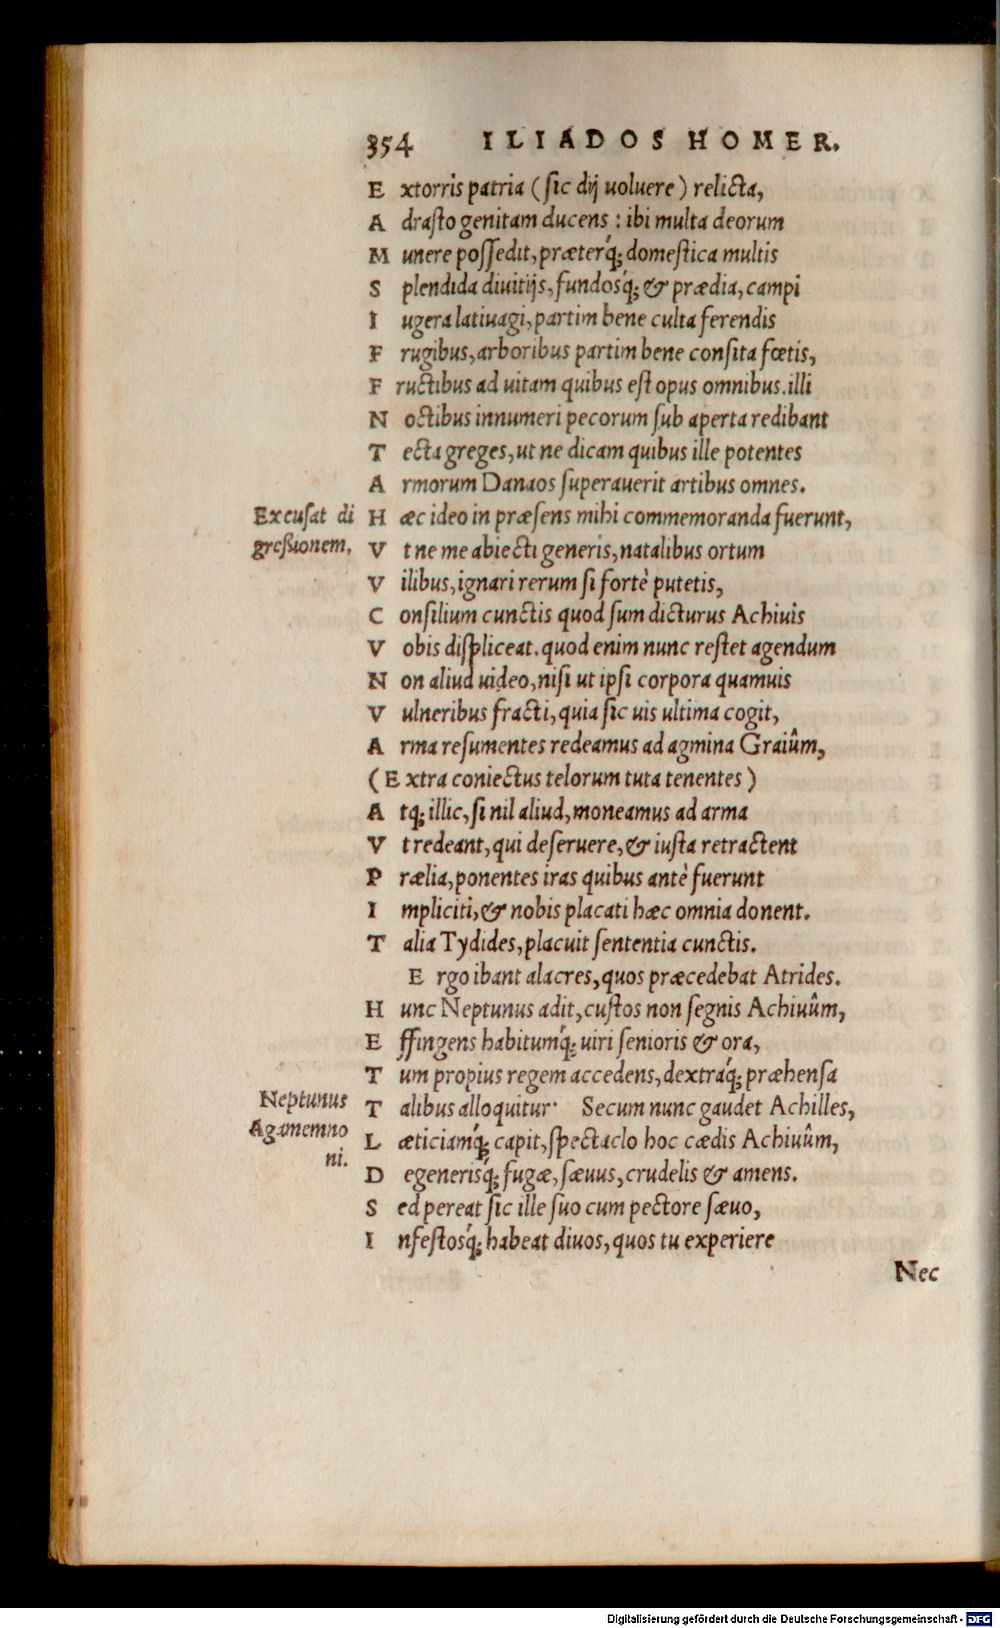 354 ILIADOS HOMER.
Extorris patria (sic dij uoluere) relicta,
Adrasto genitam ducens : ibi multa deorum
Munere possedit, præterq́; domestica multis
Splendida diuitijs, fundosq́; & prædia, campi
Iugera lativagi, partim bene culta ferendis
Frugibus, arboribus partim bene consita fœtis,
Fructibus ad uitam quibus est opus omnibus. illi
Noctibus innumeri pecorum sub aperta redibant
Tecta greges, ut ne dicam quibus ille potentes
Armorum Danaos superauerit artibus omnes.
Excusat di
gressionem.
Hæc ideo in præsens mihi commemoranda fuerunt,
Vt ne me abiecti generis, natalibus ortum
Vilibus, ignari rerum si fortè putetis,
Consilium cunctis quod sum dicturus Achiuis
Vobis displiceat. quod enim nunc restet agendum
Non aliud uideo, nisi ut ipsi corpora quamuis
Vulneribus fracti, quia sic uis ultima cogit,
Arma resumentes redeamus ad agmina Graiûm,
(Extra coniectus telorum tuta tenentes)
Atq; illic, si nil aliud, moneamus ad arma
Vt redeant, qui deseruere, & iusta retractent
Prælia, ponentes iras quibus antè fuerunt
Impliciti, & nobis placati hæc omnia donent.
Talia Tydides, placuit sententia cunctis.
Ergo ibant alacres, quos præcedebat Atrides.
Hunc Neptunus adit, custos non segnis Achiuûm,
Effingens habitumq́; uiri senioris & ora,
Tum propius regem accedens, dextraq́; præhensa
Neptunus
Agamemno
ni.
Talibus alloquitur· Secum nunc gaudet Achilles,
Læticiamq́; capit, spectaclo hoc cædis Achiuûm,
Degenerisq́; fugæ, sæuus, crudelis & amens.
Sed pereat sic ille suo cum pectore sæuo,
Infestosq́; habeat diuos, quos tu experiere
Nec
Digitalisierung gefördert durch die Deutsche Forschungsgemeinschaft - DFG